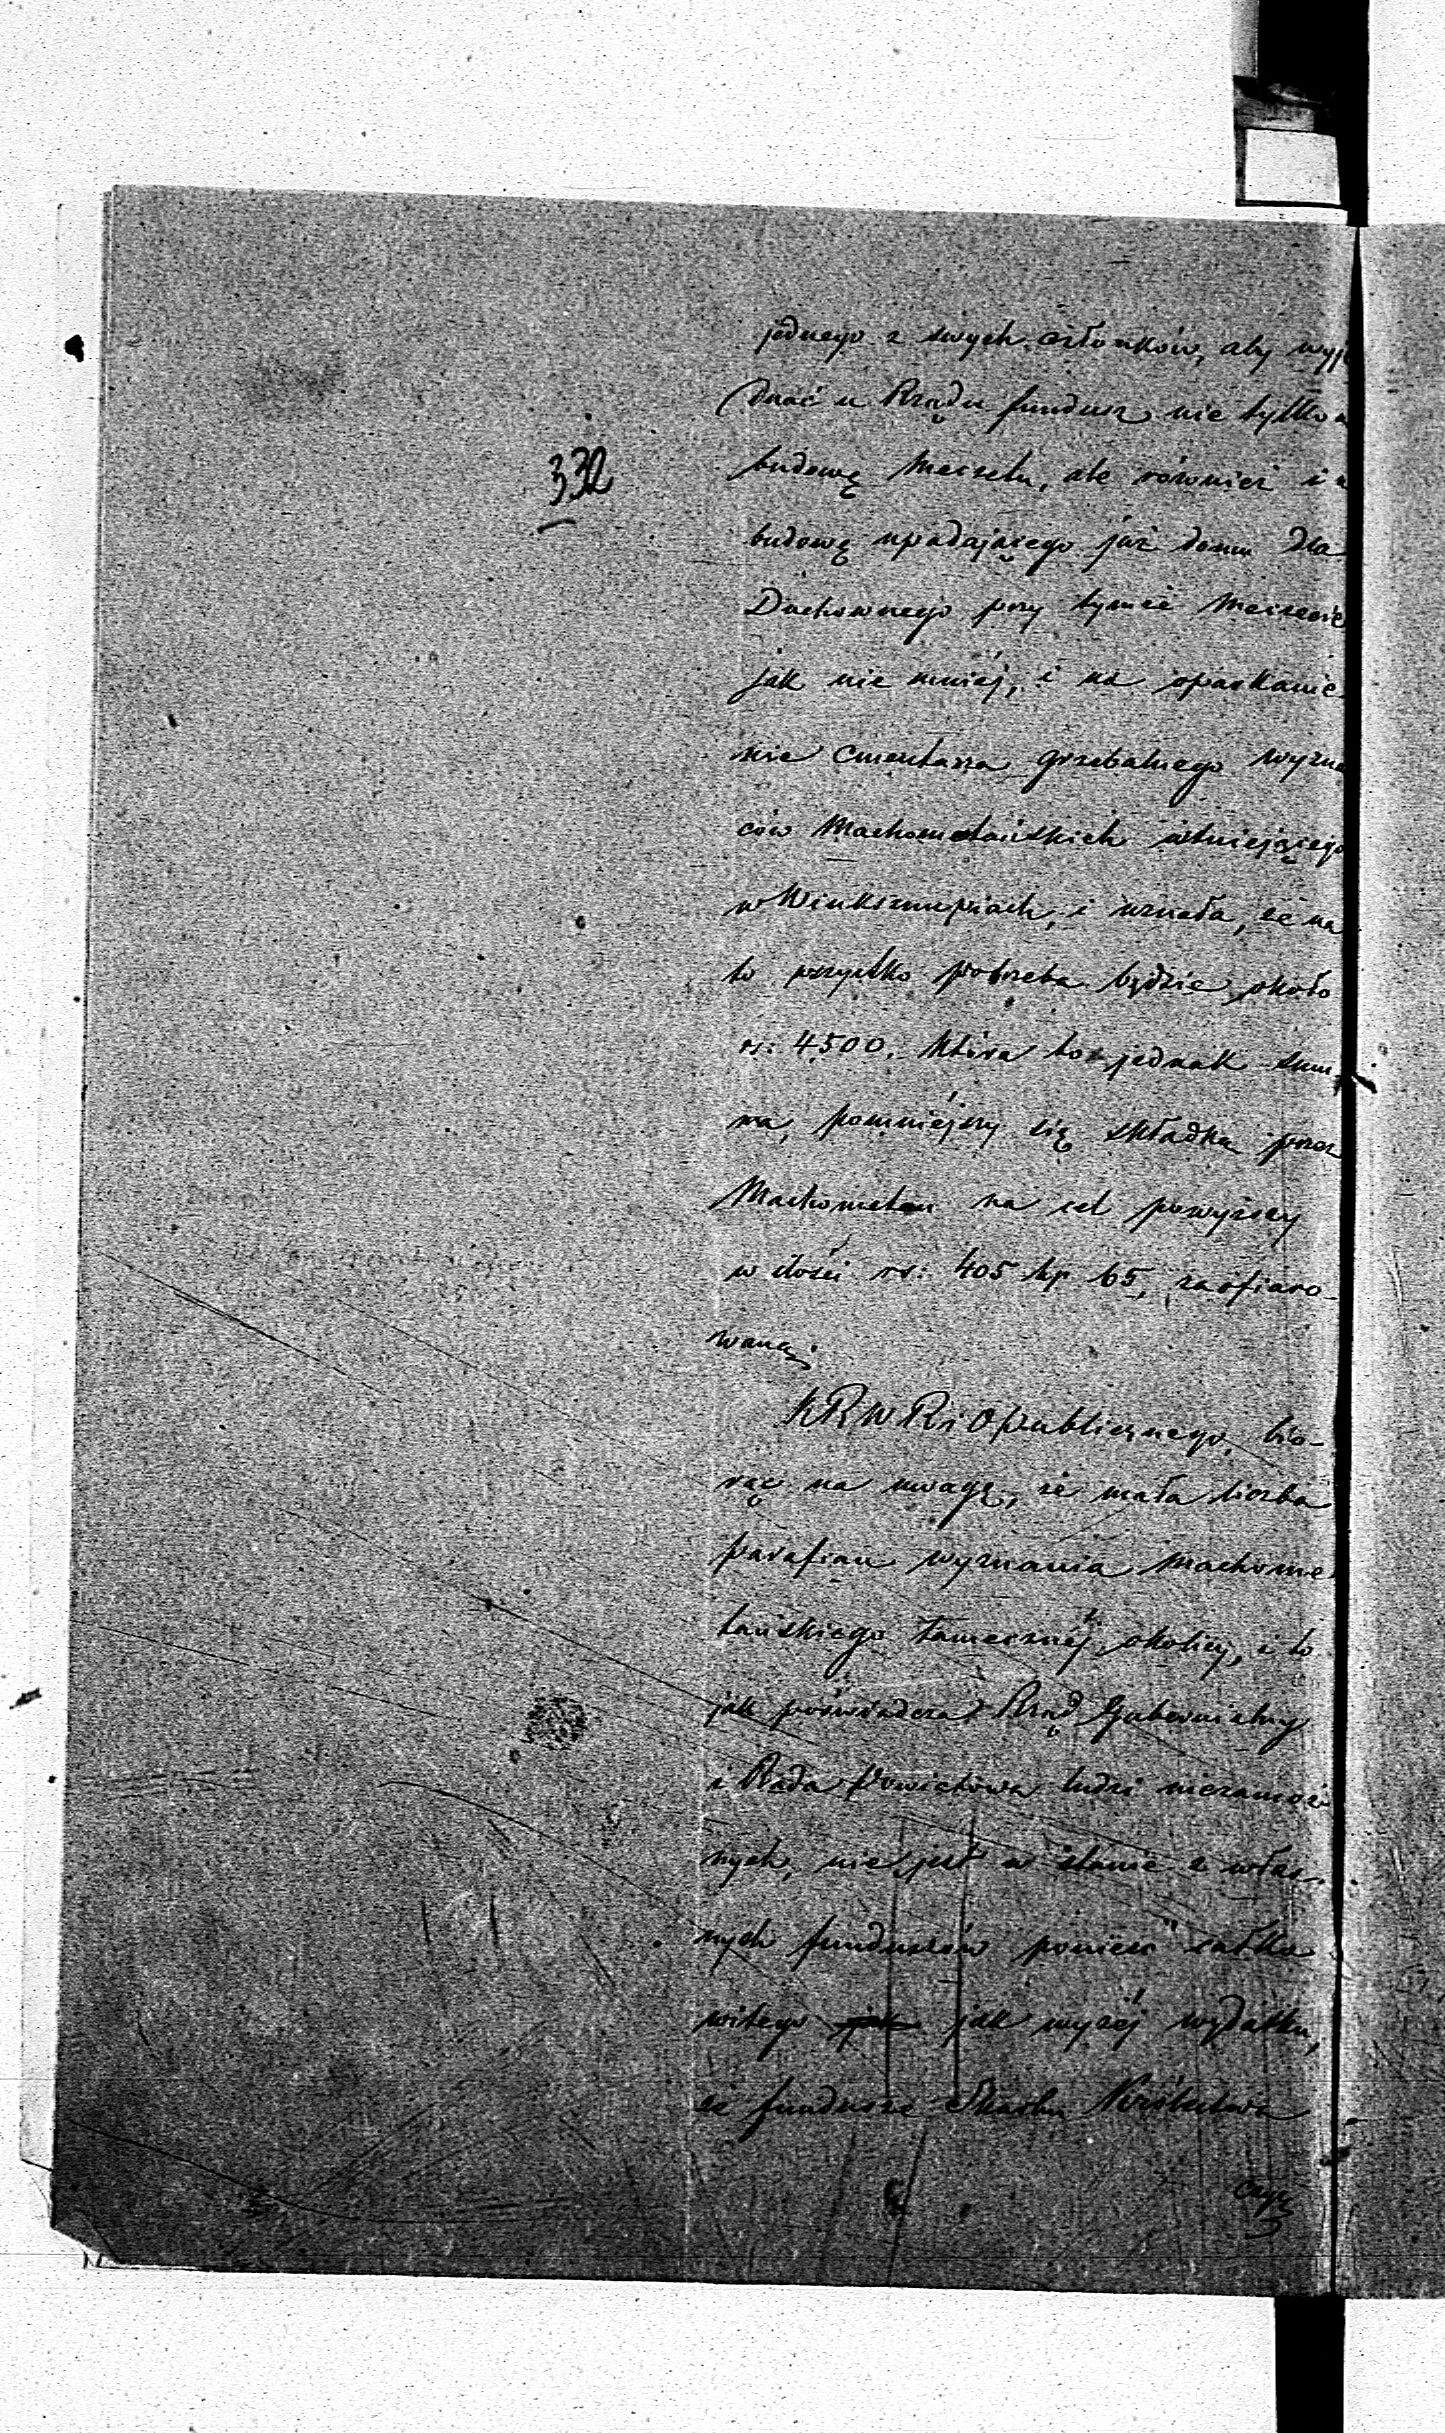 332
jednego z swych członków, aby wyje
dnać u Rządu fundusz nie tylko n
budowę Meczetu, ale również i n
budowę upadającego już domu dla
Duchownego przy tymże Meczecie
jak nie mniéj, i na oparkanie
nie Cmentarza grzebalnego wyzna
ców Machometańskich istniejącego
w Winksznupiach, i uznała, że na
to wszystko potrzeba będzie około
rs: 4500. która to jednak sum-
ma, pomniéjszy się składką przez
Machometan na cel powyższy
w ilości rs: 405 kp 65, zaofiaro-
waną.
KRWRiOpublicznego, bio-
rąc na uwagę, że mała liczba
parafian wyznania Machome
tańskiego tamecznéj okolicy, i to
jak poświadcza Rząd Gubernialny
i Rada Powiatowa ludzi niezamoż-
nych, nie jest w stanie z włas-
nych funduszów ponieść całko
witego jak wyżéj wydatku,
że fundusze Skarbu Królestwa